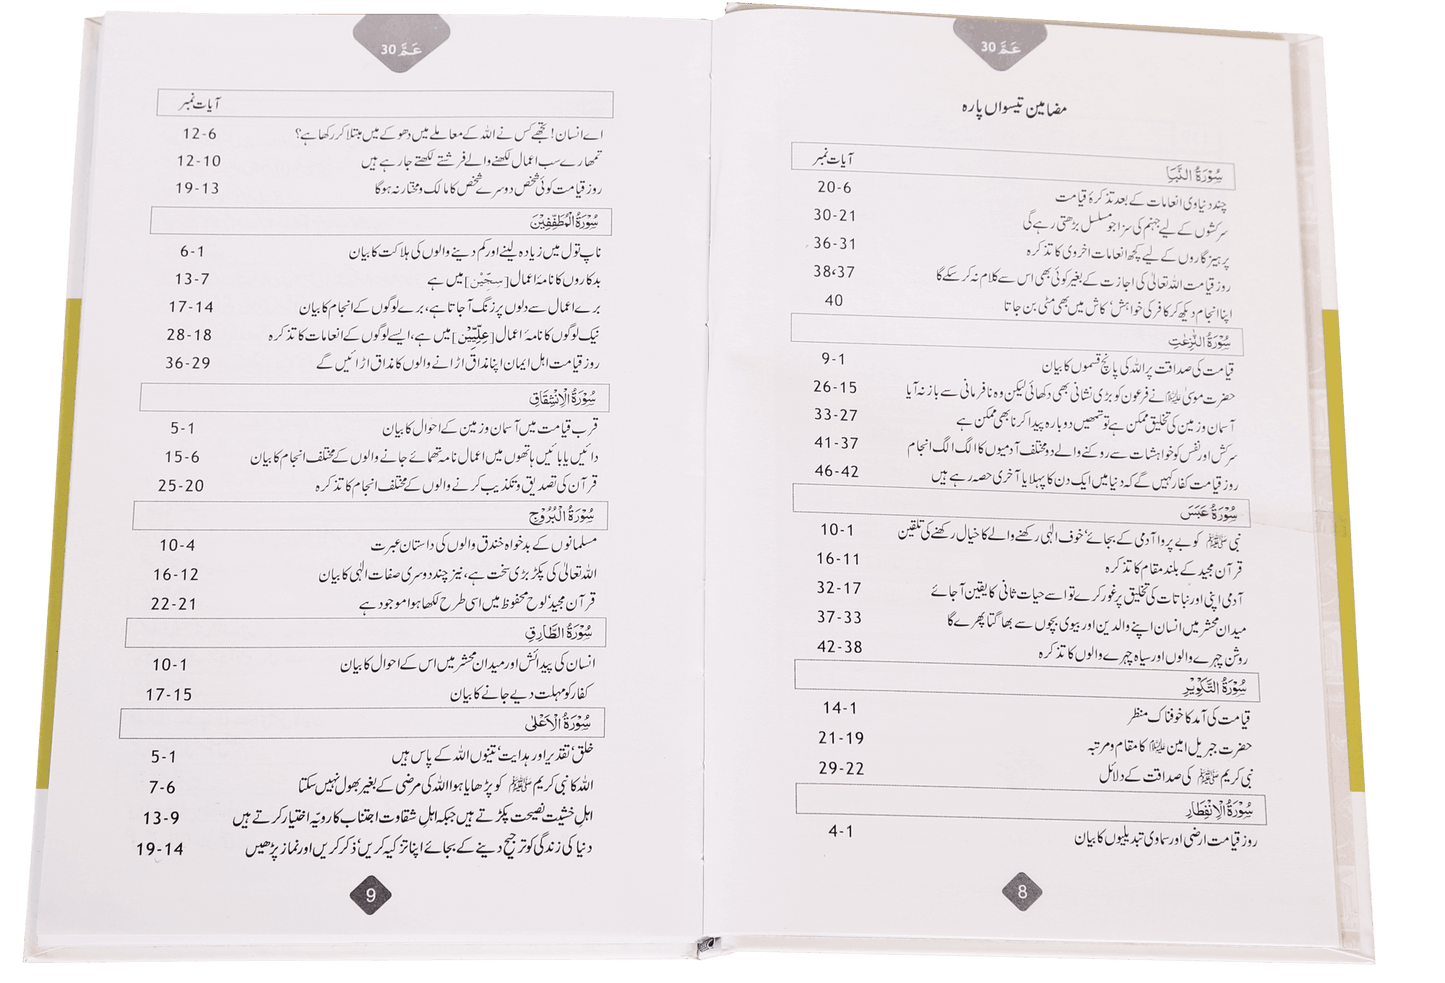 عَمَّ 30
مضامین تیسواں پارہ
آیات نمبر
سُوْرَةُ النَّبَاِ
چند دنیاوی انعامات کے بعد تذکرۂ قیامت 6-20
سرکشوں کے لیے جہنم کی سزا جو مسلسل بڑھتی رہے گی 21-30
پرہیزگاروں کے لیے کچھ انعامات اخروی کا تذکرہ 31-36
روز قیامت اللہ تعالیٰ کی اجازت کے بغیر کوئی بھی اس سے کلام نہ کر سکے گا 37،38
اپنا انجام دیکھ کر کافر کی خواہش، کاش میں بھی مٹی بن جاتا 40
سُوْرَةُ النّٰزِعٰتِ
قیامت کی صداقت پر اللہ کی پانچ قسموں کا بیان 1-9
حضرت موسیٰ علیہ السلام نے فرعون کو بڑی نشانی بھی دکھائی لیکن وہ نافرمانی سے باز نہ آیا 15-26
آسمان و زمین کی تخلیق ممکن ہے تو تمھیں دوبارہ پیدا کرنا بھی ممکن ہے 27-33
سرکش اور نفس کو خواہشات سے روکنے والے دو مختلف آدمیوں کا الگ الگ انجام 37-41
روز قیامت کفار کہیں گے کہ دنیا میں ایک دن کا پہلا یا آخری حصہ رہے ہیں 42-46
سُوْرَةُ عَبَسَ
نبی ﷺ کو بے پروا آدمی کے بجائے، خوف الٰہی رکھنے والے کا خیال رکھنے کی تلقین 1-10
قرآن مجید کے بلند مقام کا تذکرہ 11-16
آدمی اپنی اور نباتات کی تخلیق پر غور کرے تو اسے حیات ثانی کا یقین آ جائے 17-32
میدان محشر میں انسان اپنے والدین اور بیوی بچوں سے بھاگتا پھرے گا 33-37
روشن چہرے والوں اور سیاہ چہرے والوں کا تذکرہ 38-42
سُوْرَةُ التَّكْوِيْرِ
قیامت کی آمد کا خوفناک منظر 1-14
حضرت جبریل امین علیہ السلام کا مقام و مرتبہ 19-21
نبی کریم ﷺ کی صداقت کے دلائل 22-29
سُوْرَةُ الْاِنْفِطَارِ
روز قیامت ارضی اور سماوی تبدیلیوں کا بیان 1-4
8
عَمَّ 30
آیات نمبر
اے انسان! تجھے کس نے اللہ کے معاملے میں دھوکے میں مبتلا کر رکھا ہے؟ 6-12
تمھارے سب اعمال لکھنے والے فرشتے لکھتے جا رہے ہیں 10-12
روز قیامت کوئی شخص دوسرے شخص کا مالک و مختار نہ ہوگا 13-19
سُوْرَةُ الْمُطَفِّفِيْنَ
ناپ تول میں زیادہ لینے اور کم دینے والوں کی ہلاکت کا بیان 1-6
بدکاروں کا نامۂ اعمال [سِجِّيْن] میں ہے 7-13
برے اعمال سے دلوں پر زنگ آ جاتا ہے، برے لوگوں کے انجام کا بیان 14-17
نیک لوگوں کا نامۂ اعمال [عِلِّيِّيْن] میں ہے، ایسے لوگوں کے انعامات کا تذکرہ 18-28
روز قیامت اہل ایمان اپنا مذاق اڑانے والوں کا مذاق اڑائیں گے 29-36
سُوْرَةُ الْاِنْشِقَاقِ
قرب قیامت میں آسمان و زمین کے احوال کا بیان 1-5
دائیں یا بائیں ہاتھوں میں اعمال نامہ تھمائے جانے والوں کے مختلف انجام کا بیان 6-15
قرآن کی تصدیق و تکذیب کرنے والوں کے مختلف انجام کا تذکرہ 20-25
سُوْرَةُ الْبُرُوْجِ
مسلمانوں کے بدخواہ خندق والوں کی داستان عبرت 4-10
اللہ تعالیٰ کی پکڑ بڑی سخت ہے، نیز چند دوسری صفات الٰہی کا بیان 12-16
قرآن مجید، لوح محفوظ میں اسی طرح لکھا ہوا موجود ہے 21-22
سُوْرَةُ الطَّارِقِ
انسان کی پیدائش اور میدان محشر میں اس کے احوال کا بیان 1-10
کفار کو مہلت دیے جانے کا بیان 15-17
سُوْرَةُ الْاَعْلٰى
خلق، تقدیر اور ہدایت، تینوں اللہ کے پاس ہیں 1-5
اللہ کا نبی کریم ﷺ کو پڑھایا ہوا اللہ کی مرضی کے بغیر بھول نہیں سکتا 6-7
اہلِ خشیت نصیحت پکڑتے ہیں جبکہ اہلِ شقاوت اجتناب کا رویّہ اختیار کرتے ہیں 9-13
دنیا کی زندگی کو ترجیح دینے کے بجائے اپنا تزکیہ کریں، ذکر کریں اور نماز پڑھیں 14-19
9